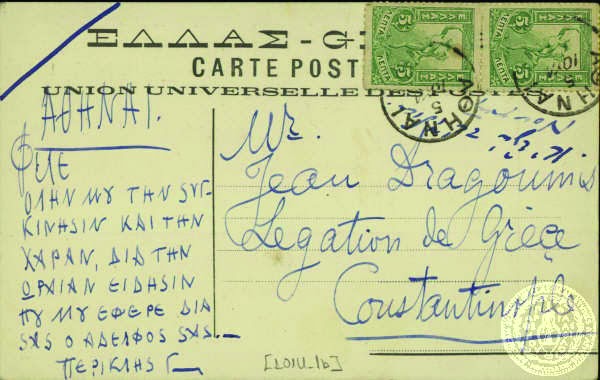 ΕΛΛΑΣ - G
CARTE POST
UNION UNIVERSELLE DES POSTES
ΑΘΗΝΑΙ.
ΦΙΛΕ
ΟΛΗΝ ΜΥ ΤΗΝ ΣΥΓ-
ΚΙΝΗΣΙΝ ΚΑΙ ΤΗΝ
ΧΑΡΑΝ, ΔΙΑ ΤΗΝ
ΩΡΑΙΑΝ ΕΙΔΗΣΙΝ
ΠΥ ΜΥ ΕΦΕΡΕ ΔΙΑ
ΣΑΣ Ο ΑΔΕΛΦΟΣ ΣΑΣ.—
ΠΕΡΙΚΛΗΣ Γ—
ΕΛΛΑΣ
5 ΛΕΠΤΑ 5
ΕΛΛΑΣ
5 ΛΕΠΤΑ 5
ΑΘΗΝΑΙ
5
ΑΘΗΝΑΙ
Mr.
Jean Dragoumis
Legation de Grèce
Constantinople